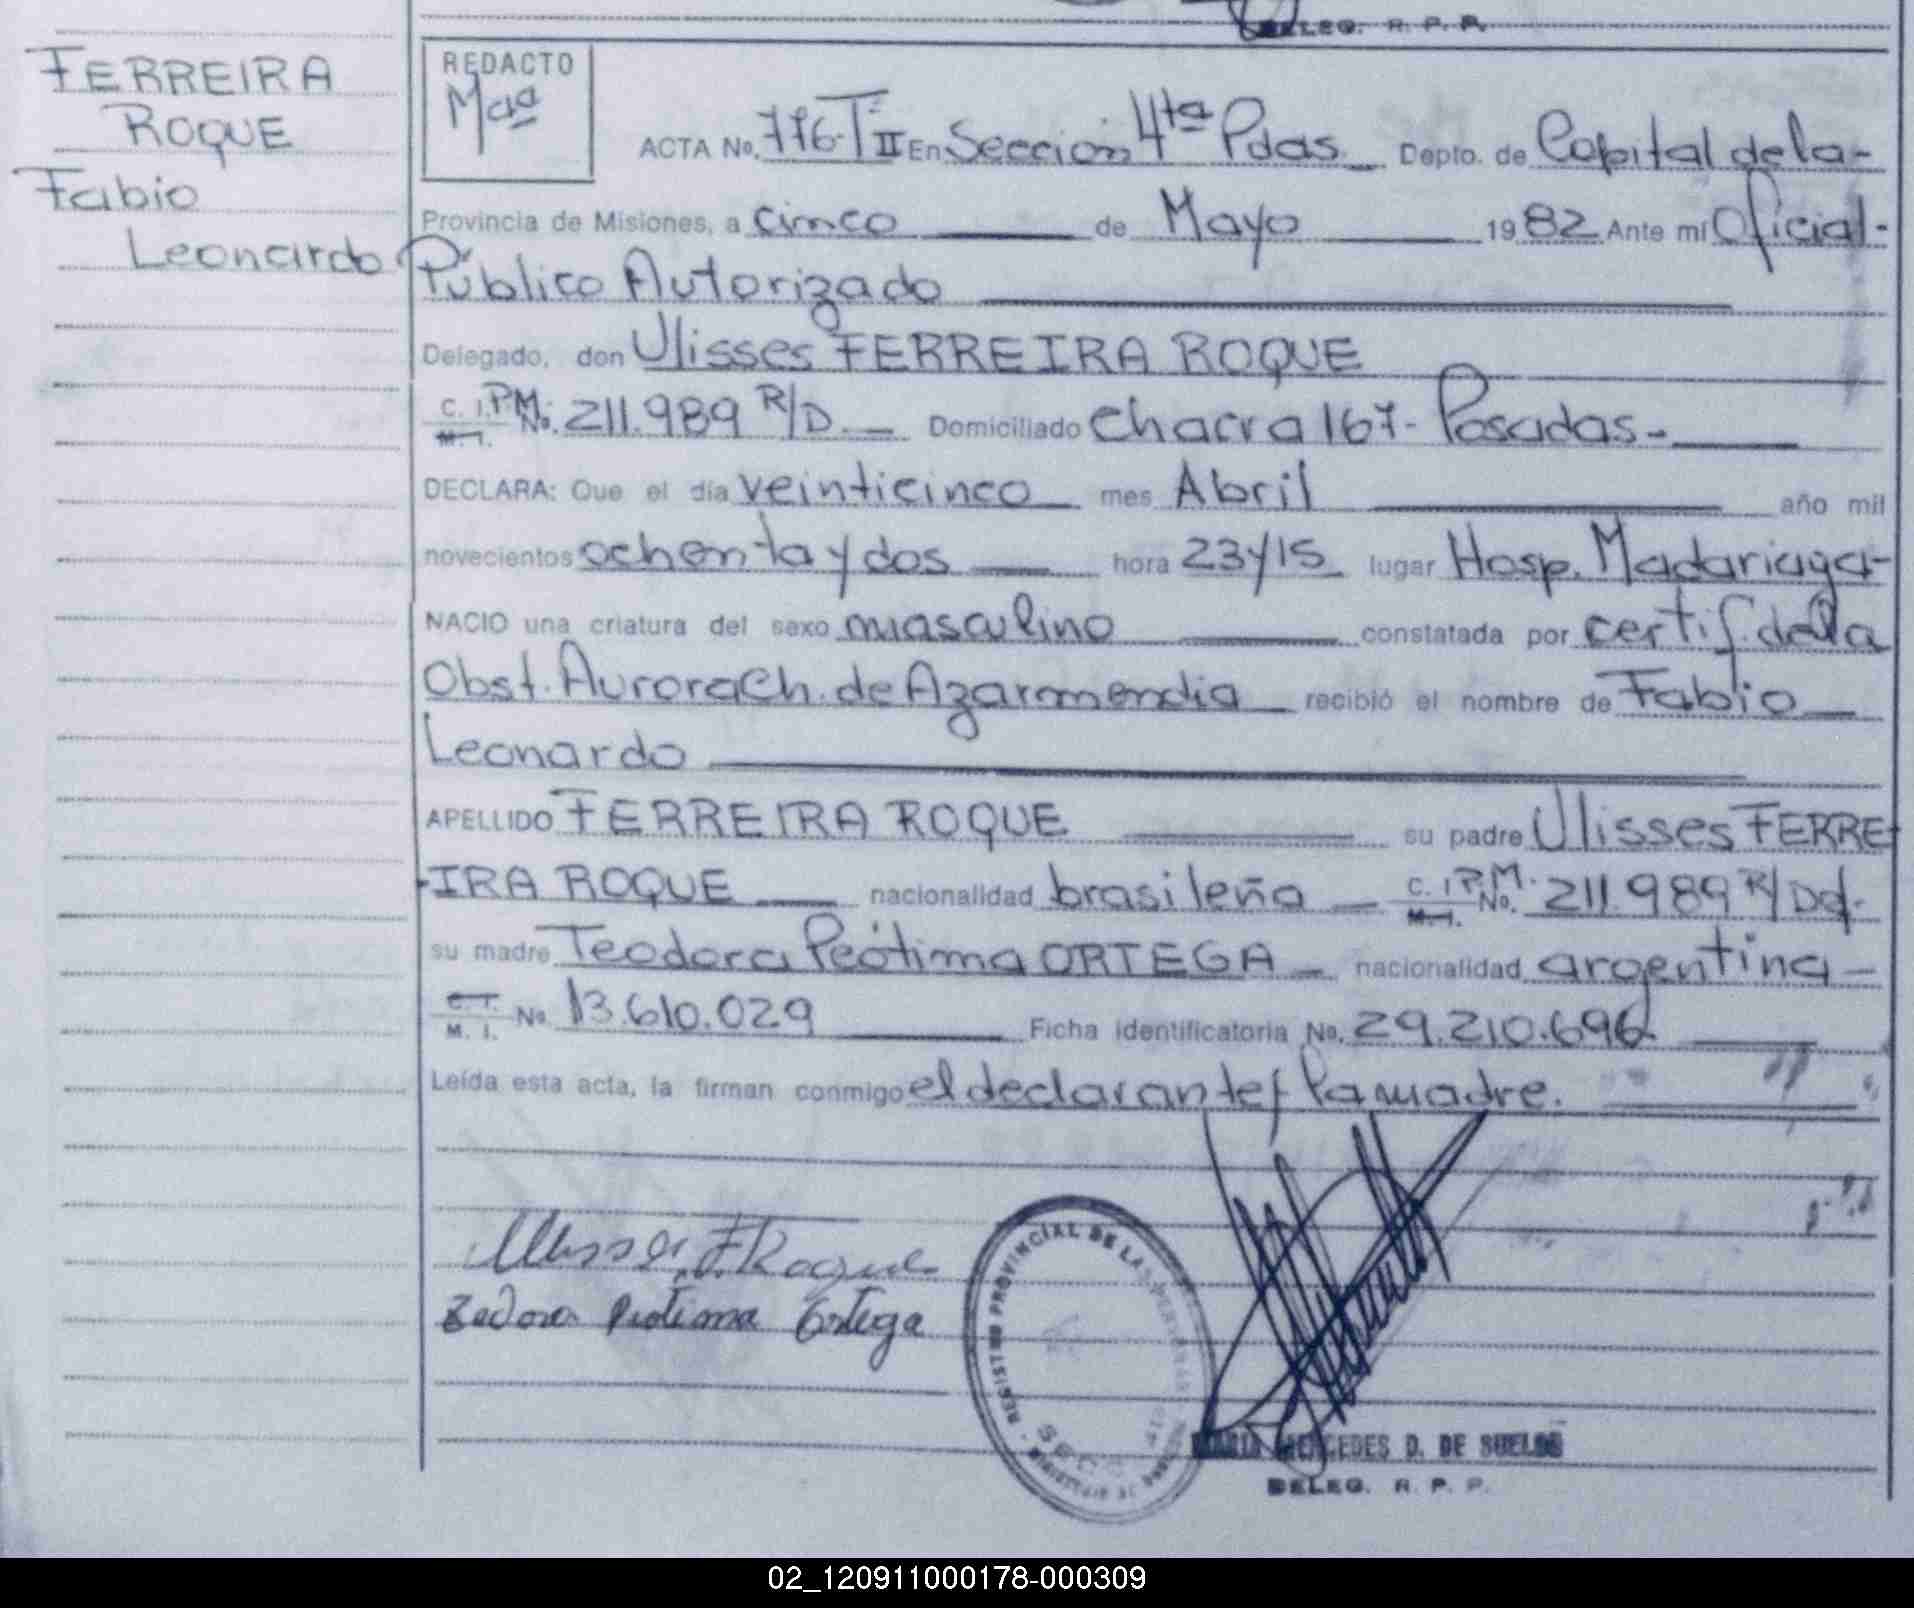 DELEG. R. P. P.
FERREIRA
ROQUE
Fabio
Leonardo
REDACTO
ACTA No. 776-T II En Sección 4ta Pdas. Depto. de Capital de la-
Provincia de Misiones, a cinco de Mayo 1982 Ante mí Oficial-
Público Autorizado
Delegado, don Ulisses FERREIRA ROQUE
C. I. P.M. M. I. No. 211.989 R/D. Domiciliado Chacra 167- Posadas-
DECLARA: Que el día veinticinco mes Abril año mil
novecientos ochenta y dos hora 23y15 lugar Hosp. Madariaga-
NACIO una criatura del sexo masculino constatada por certif. de la
Obst. Aurora Ch. de Azarmendia recibió el nombre de Fabio
Leonardo
APELLIDO FERREIRA ROQUE su padre Ulisses FERRE
IRA ROQUE nacionalidad brasileña C. I. P.M. M. I. No. 211.989 R/Dd.
su madre Teodora Peótima ORTEGA nacionalidad argentina-
C. I. M. I. No. 13.610.029 Ficha identificatoria No. 29.210.696
Leída esta acta, la firman conmigo el declarante y la madre.
Ulisses F. Roque
Teodora Piotima Ortega
REGISTRO PROVINCIAL DE LAS PERSONAS
MARIA MERCEDES D. DE SUELDO
DELEG. R. P. P.
02_120911000178-000309